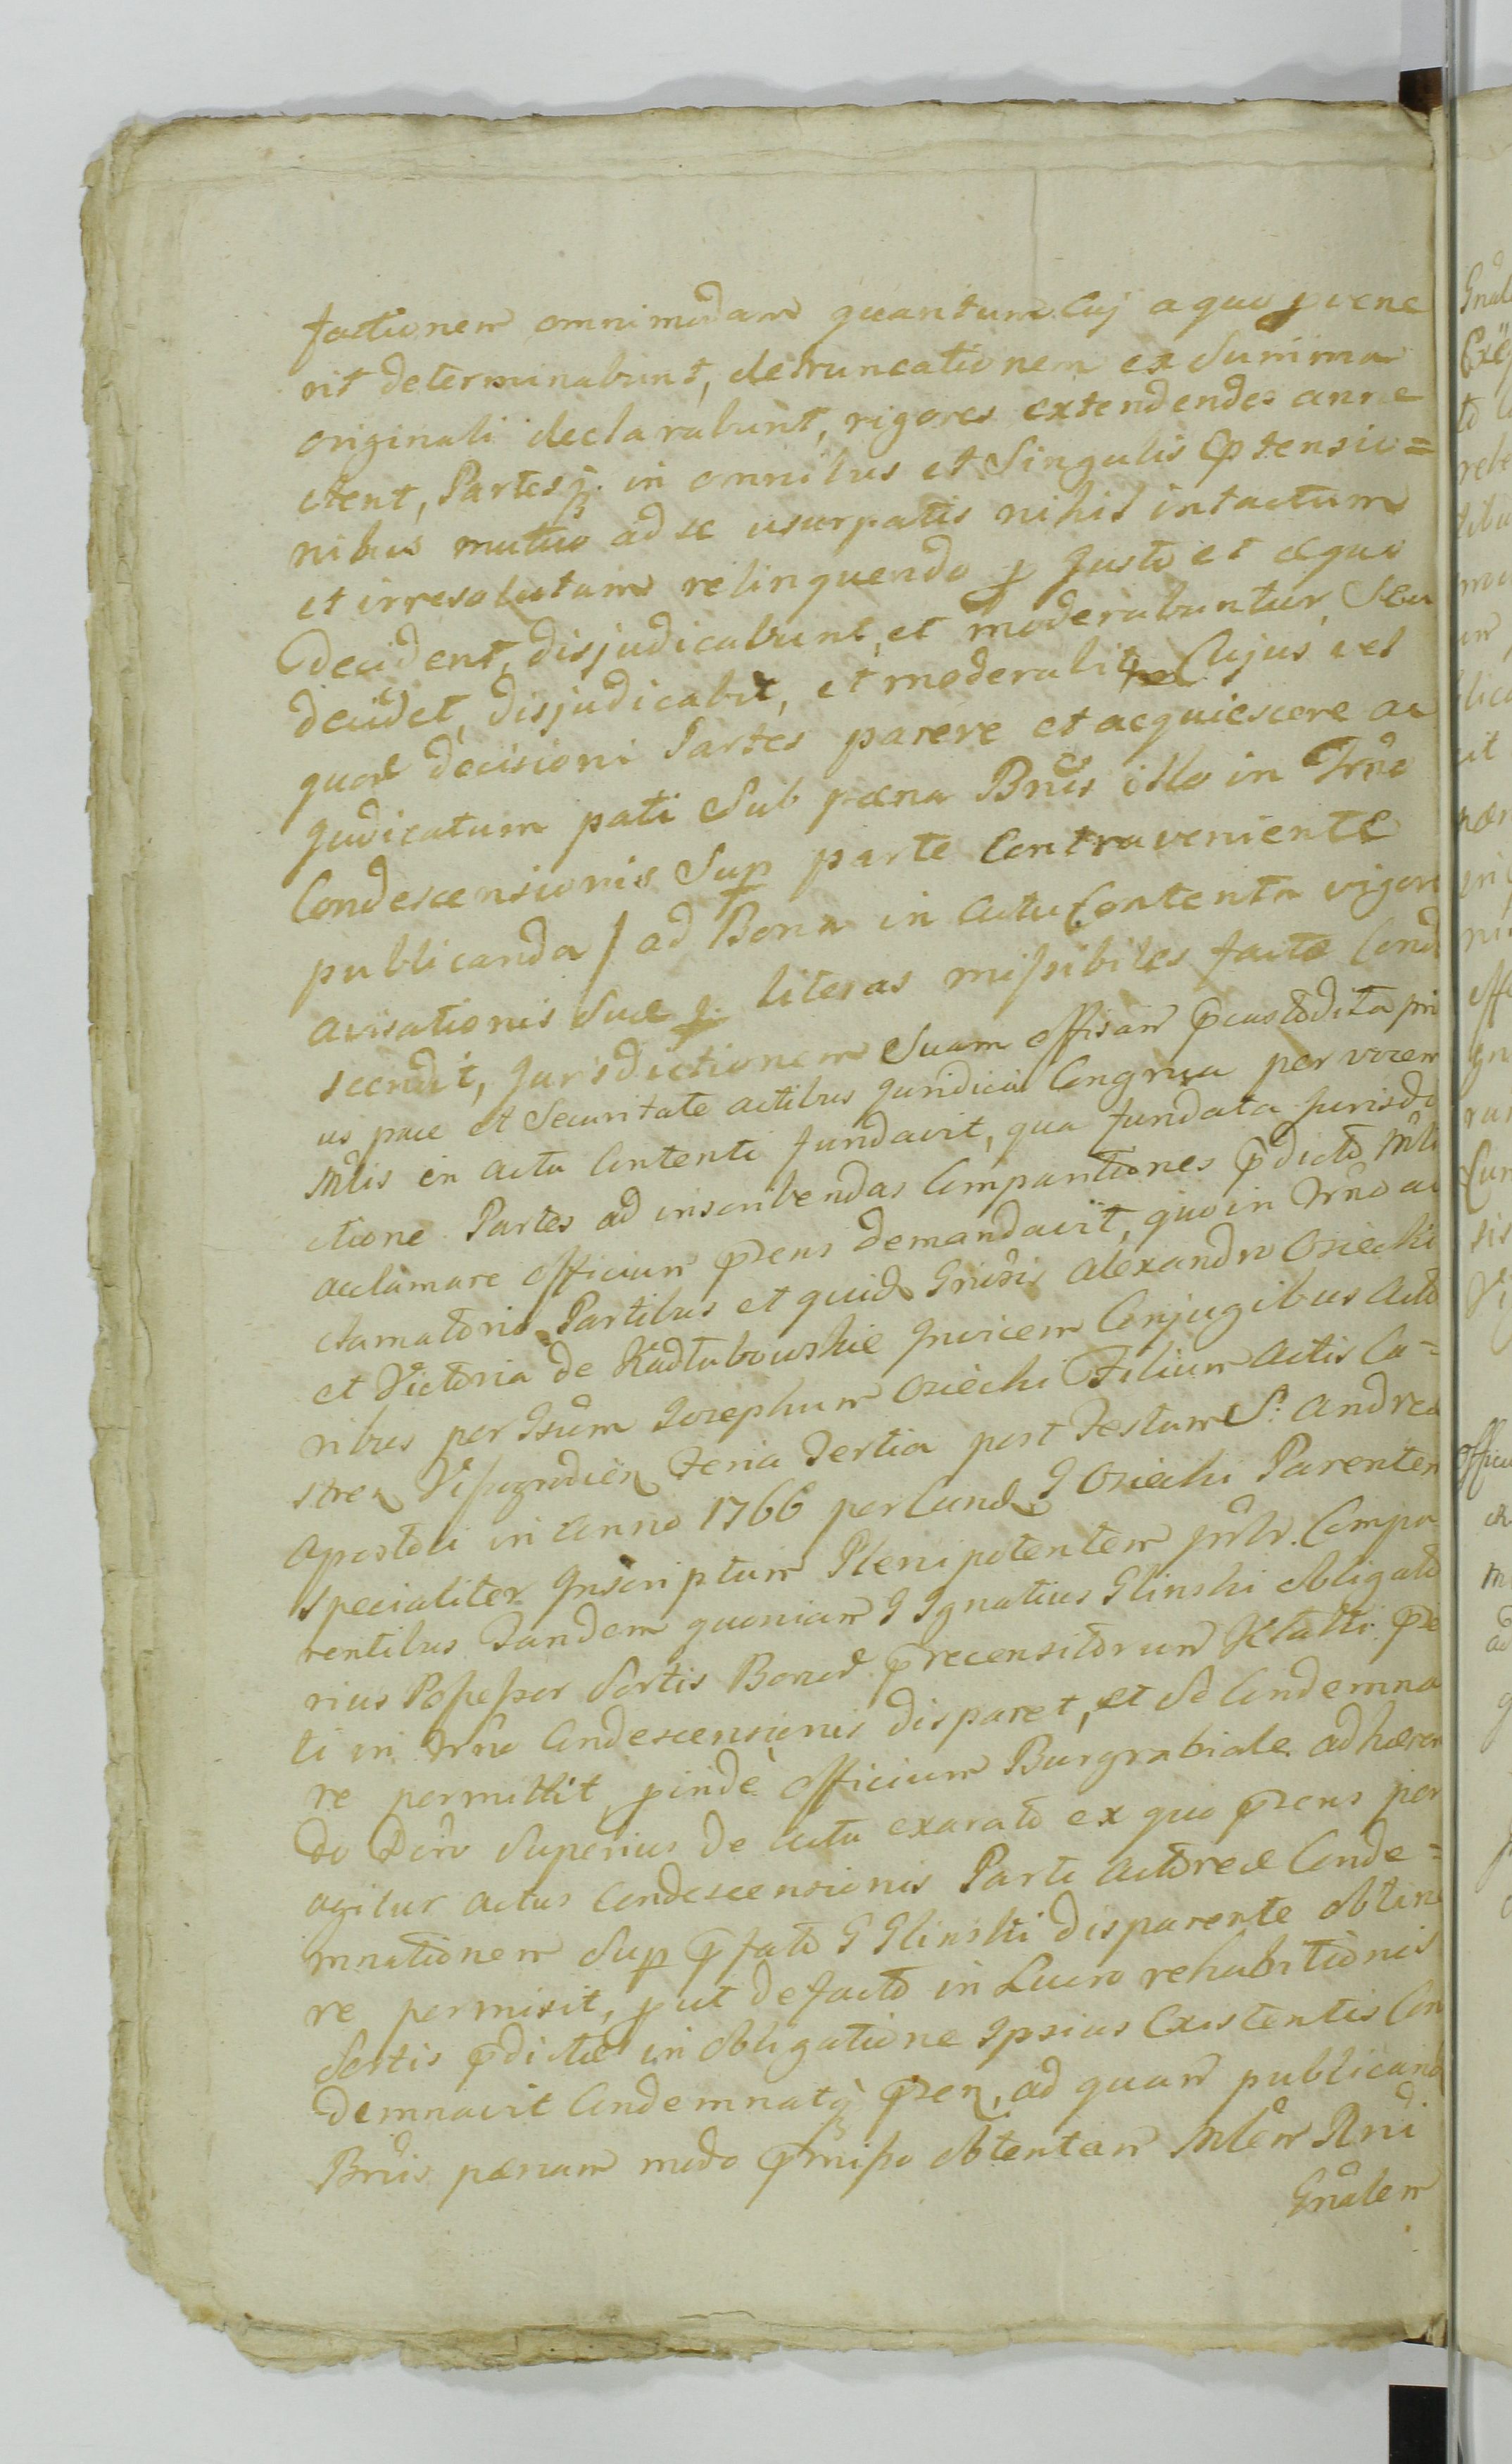 factionem omnimodam quantum Cuj a quo pvene
rit determinabunt, detruncationem ex Summa
originali declarabunt, rigores extendendos anne
ctent, Partesq. in omnibus et Singulis Ptensio=
nibus mutuo ad se usurpatis nihil intactum
et irresolutum relinquendo p Justo et æquo
decident, disjudicabunt, et moderabuntur, Seu
decidet, disjudicabit, et moderabitr Cujus vel
quor decisioni Partes parere et acquiescere ac
Judicatum pati Sub pœna Bnis illo in Trno
Condescensionis Sup parte Contraveniente
publicanda / ad Bona in actu Contenta vigore
avisationis Suæ p. literas missibiles factæ Cond
scendit, Jurisdictionem Suam offisam pcustodita pri
us pace et Securitate actibus Juridicis Congrua per vocem
Mlis in actu Contenti fundavit, qua fundata Jurisdi
ctione Partes ad inscribendas Comparitiones pdicto Mli
acclamare officium pzens demandavit, quo in Trno ac
clamatorio Partibus et quid Gnrsis Alexandro Osiecki
et Victoria de Kadłubowskie Invicem Conjugibus Acto
ribus per Gsum Josephum Osiecki Filium actis Ca=
stren Vissogrodien Feria Tertia post Festum S: Andreæ
Apostoli in Anno 1766 per Eund G Osiecki Parentem
Specialiter Inscriptum Plenipotentem pnlr. Compa
rentibus Tandem quoniam G Ignatius Glinski obligato
rius Possessor Sortis Bonor precensitorum Klatki pre
ti in Trno Condescensionis disparet, et Se Condemna
re permittit pinde officium Burgrabiale adhæren
do Dcro Superius de actu exarato ex quo pzens per
agitur actus Condescensionis Parti actoreæ Conde=
mnationem Sup pfato G Glinski disparente obtine
re permisit, put de facto in Lucro rehabitionis
Sortis pdictæ in obligatione Ipsius Existentis Con
demnavit Condemnatq pzen, ad quam publicand
Bnis pœnam modo pmisso obtentam Mlem Rni
Gnalem